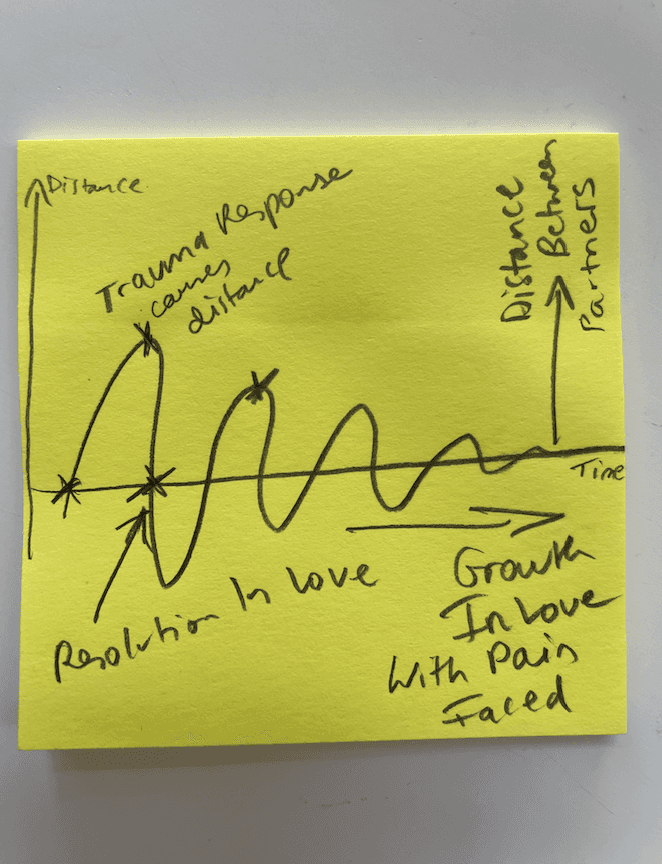 Distance
Trauma Response
causes
distance
Distance
Between
Partners
Time
Resolution In Love
Growth
In Love
With Pain
Faced